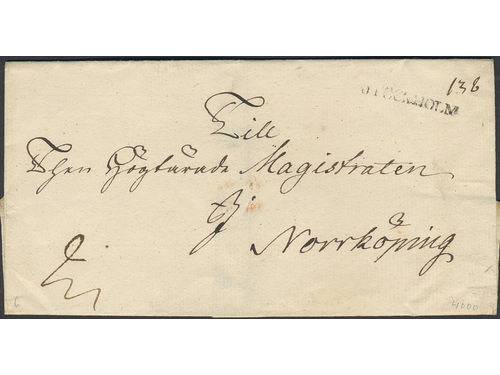 138
STOCKHOLM
Till
Then Högtärade Magistraten
Norrköping
6
4000